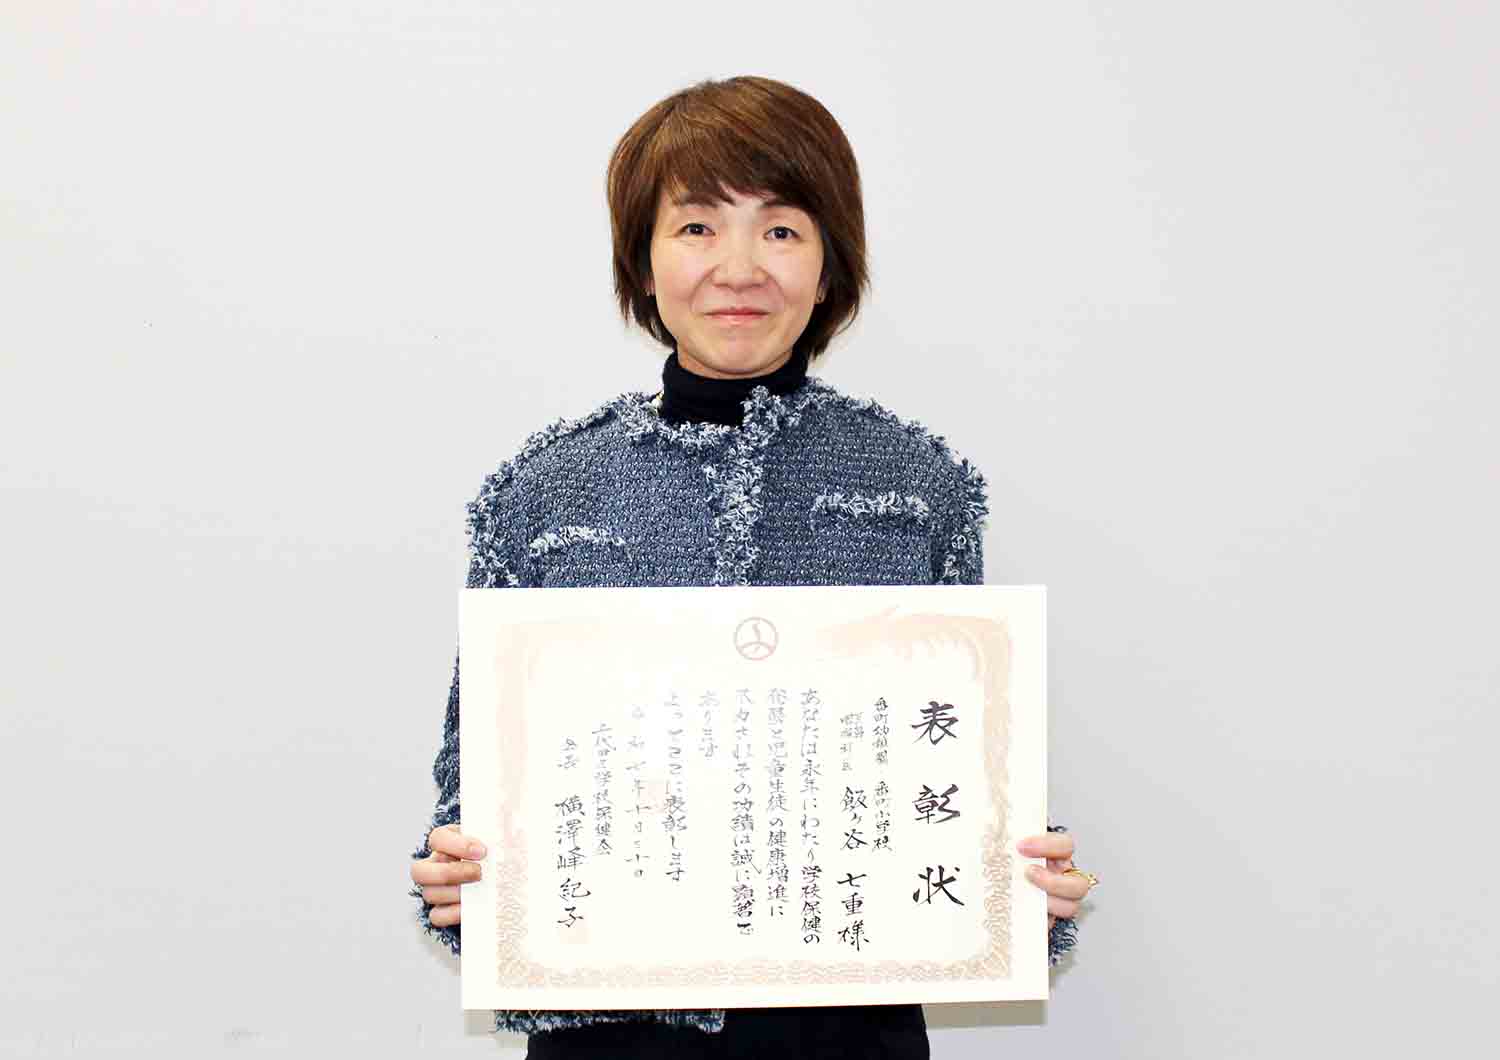 表彰状
番町幼稚園・番町小学校
飯ヶ谷 七重様
あなたは永年にわたり学校保健の
発展と児童生徒の健康増進に
尽力されその功績は誠に顕著で
あります
よってここに表彰します
令和七年十月三十日
千代田区学校保健会
会長 横澤峰紀子